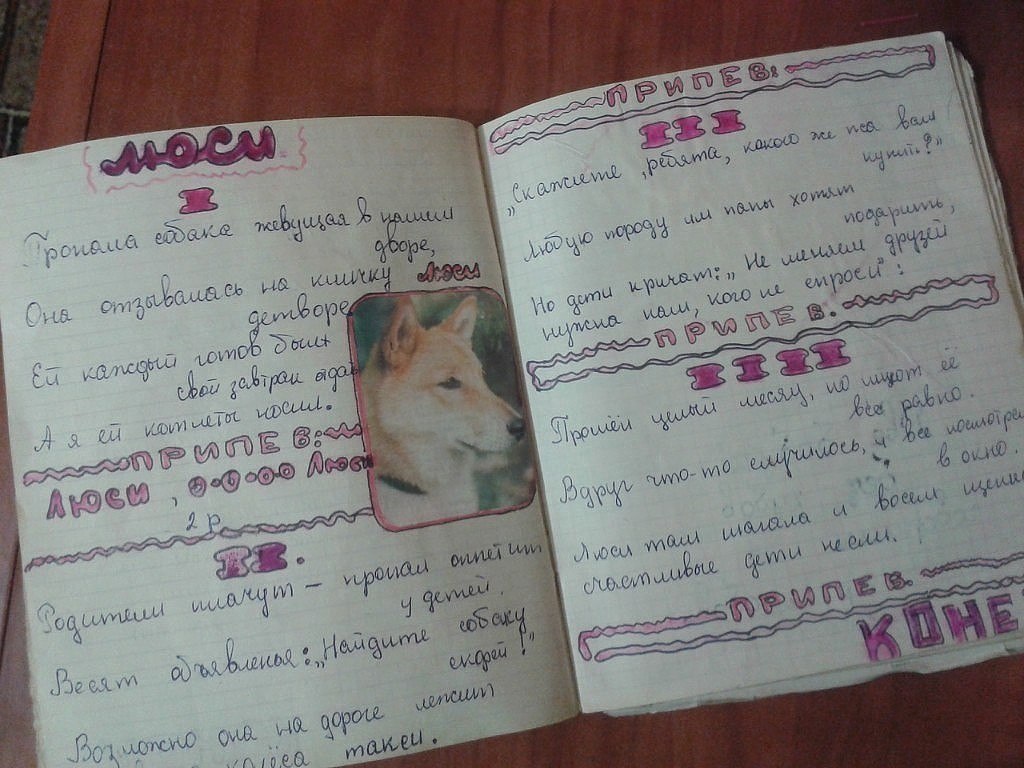 ЛЮСИ
I
Пропала собака жевущая в нашем
дворе,
Она отзывалась на кличку Люси
детворе
Ей каждый готов был
свой завтрак отда
А я ей котлеты носил.
ПРИПЕВ:
Люси, о-о-о-о Люси
2 р
II.
Родители плачут – пропал аппетит
у детей.
Весят объявленья: „Найдите собаку
скорей!"
Возможно она на дороге лежит
колёса такси.
ПРИПЕВ:
III
„Скажите, ребята, какого же пса вам
купит?"
Любую породу им папы хотят
подарить,
Но дети кричат: „Не меняем друзей
нужна нам, кого не спроси":
ПРИПЕВ.
IIII
Прошёл целый месяц, но ищют её
всё равно.
Вдруг что-то случилось, и все посмотре
в окно.
Люси там шагала и восем щенко
счастливые дети несли.
ПРИПЕВ.
КОНЕ